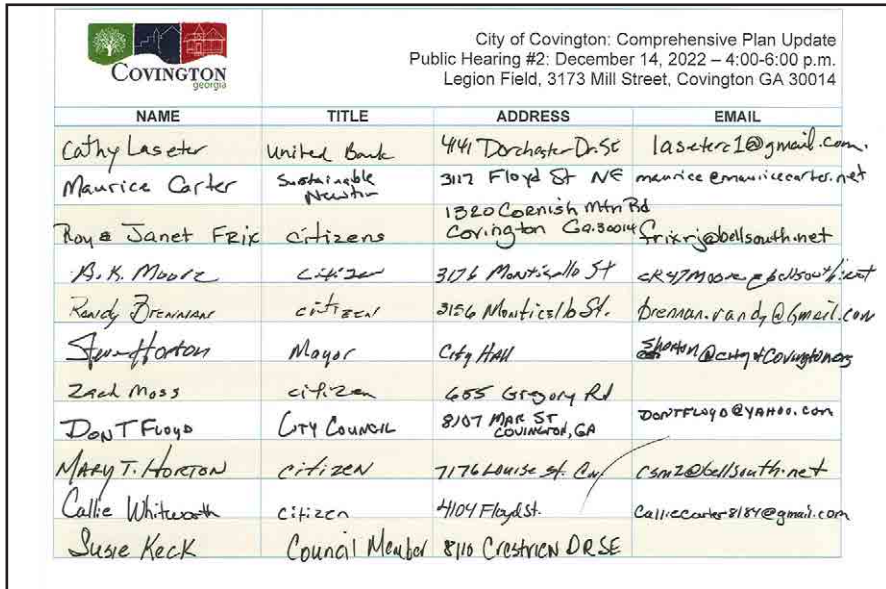 COVINGTON
georgia
City of Covington: Comprehensive Plan Update
Public Hearing #2: December 14, 2022 – 4:00-6:00 p.m.
Legion Field, 3173 Mill Street, Covington GA 30014
NAME TITLE ADDRESS EMAIL
Cathy Laseter United Bank 4141 Dorchester Dr. SE laseterc1@gmail.com.
Maurice Carter Sustainable Newton 3117 Floyd St NE maurice@mauricecarter.net
Roy & Janet Frix citizens 1320 Cornish Mtn Rd
Covington Ga. 30014 frixrj@bellsouth.net
B.K. Moore citizen 3176 Monticello St
Randy Brennan citizen 3156 Monticello St. brennan.randy@Gmail.com
Steve Horton Mayor City Hall
Zach Moss citizen 655 Gregory Rd
Don T Floyd City Council 8107 MAR ST
COVINGTON, GA DONTFLOYD@YAHOO.COM
MARY T. HORTON citizen 7176 Louise St. csm2@bellsouth.net
Callie Whitworth citizen 4104 Floyd St. calliecarter8184@gmail.com
Susie Keck Council Member 8110 DR SE